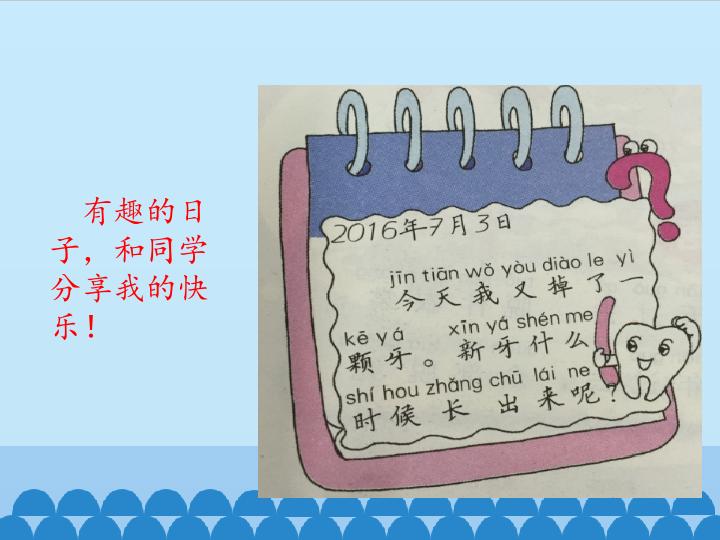 有趣的日
子，和同学
分享我的快
乐！
2016年7月3日
jīn tiān wǒ yòu diào le yì
今天我又掉了一
kē yá xīn yá shén me
颗牙。新牙什么
shí hou zhǎng chū lái ne
时候长出来呢？